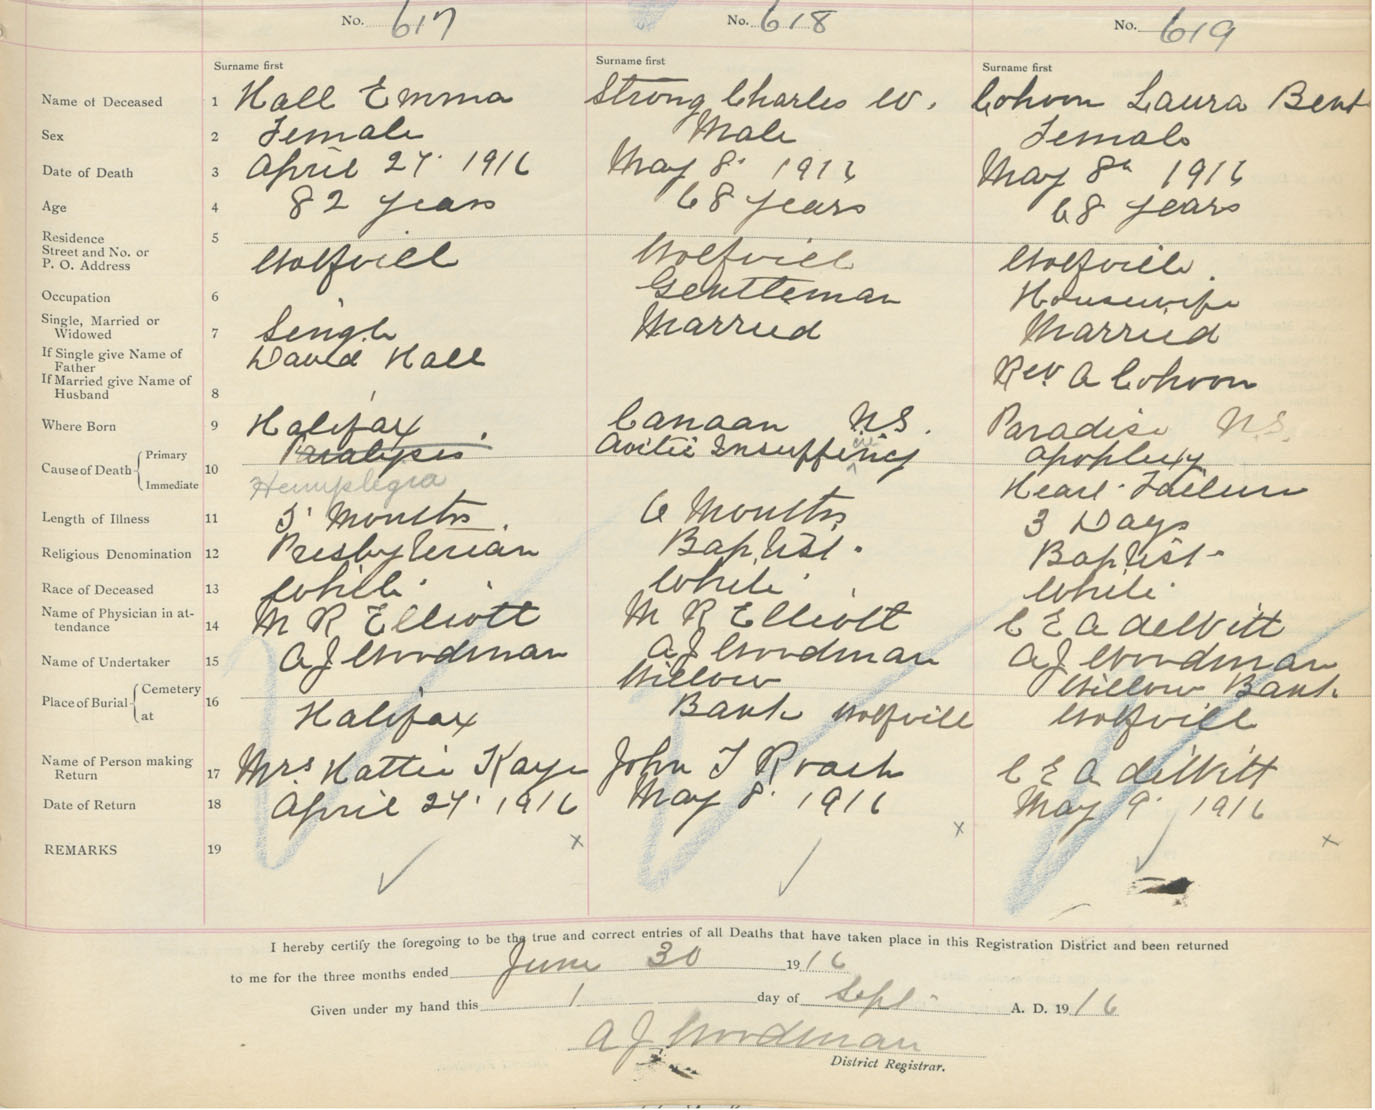 No. 617 No. 618 No. 619
Surname first Surname first Surname first
Name of Deceased 1 Hall Emma Strong Charles W. Cohoon Laura Bent
Sex 2 Female Male Female
Date of Death 3 April 27. 1916 May 8. 1916 May 8th 1916
Age 4 82 years 68 years 68 years
Residence 5
Street and No. or
P. O. Address Wolfvill Wolfvill Wolfville.
Occupation 6 Gentleman Housewife
Single, Married or
Widowed 7 Single Married Married
If Single give Name of
Father David Hall
If Married give Name of
Husband 8 Rev. A Cohoon
Where Born 9 Halifax. Canaan N.S. Paradise N.S.
Cause of Death { Primary 10 Paralysis Insufficiency apoplexy
Immediate Hemiplegia Heart Failure
Length of Illness 11 5 Months. 6 Months 3 Days
Religious Denomination 12 Presbyterian Baptist. Baptist
Race of Deceased 13 White White White
Name of Physician in at-
tendance 14 M R Elliott M R Elliott C E A deWitt
Name of Undertaker 15 A J Woodman A J Woodman A J Woodman
Place of Burial { Cemetery 16 Willow Willow Bank
at Halifax Bank Wolfvill Wolfvill
Name of Person making
Return 17 Mrs Hattie Kaye John T Roach C E A deWitt
Date of Return 18 April 27. 1916 May 8. 1916 May 9. 1916
REMARKS 19 x x x
I hereby certify the foregoing to be the true and correct entries of all Deaths that have taken place in this Registration District and been returned
to me for the three months ended June 30 1916
Given under my hand this 1 day of Sept A. D. 1916
A J Woodman
District Registrar.